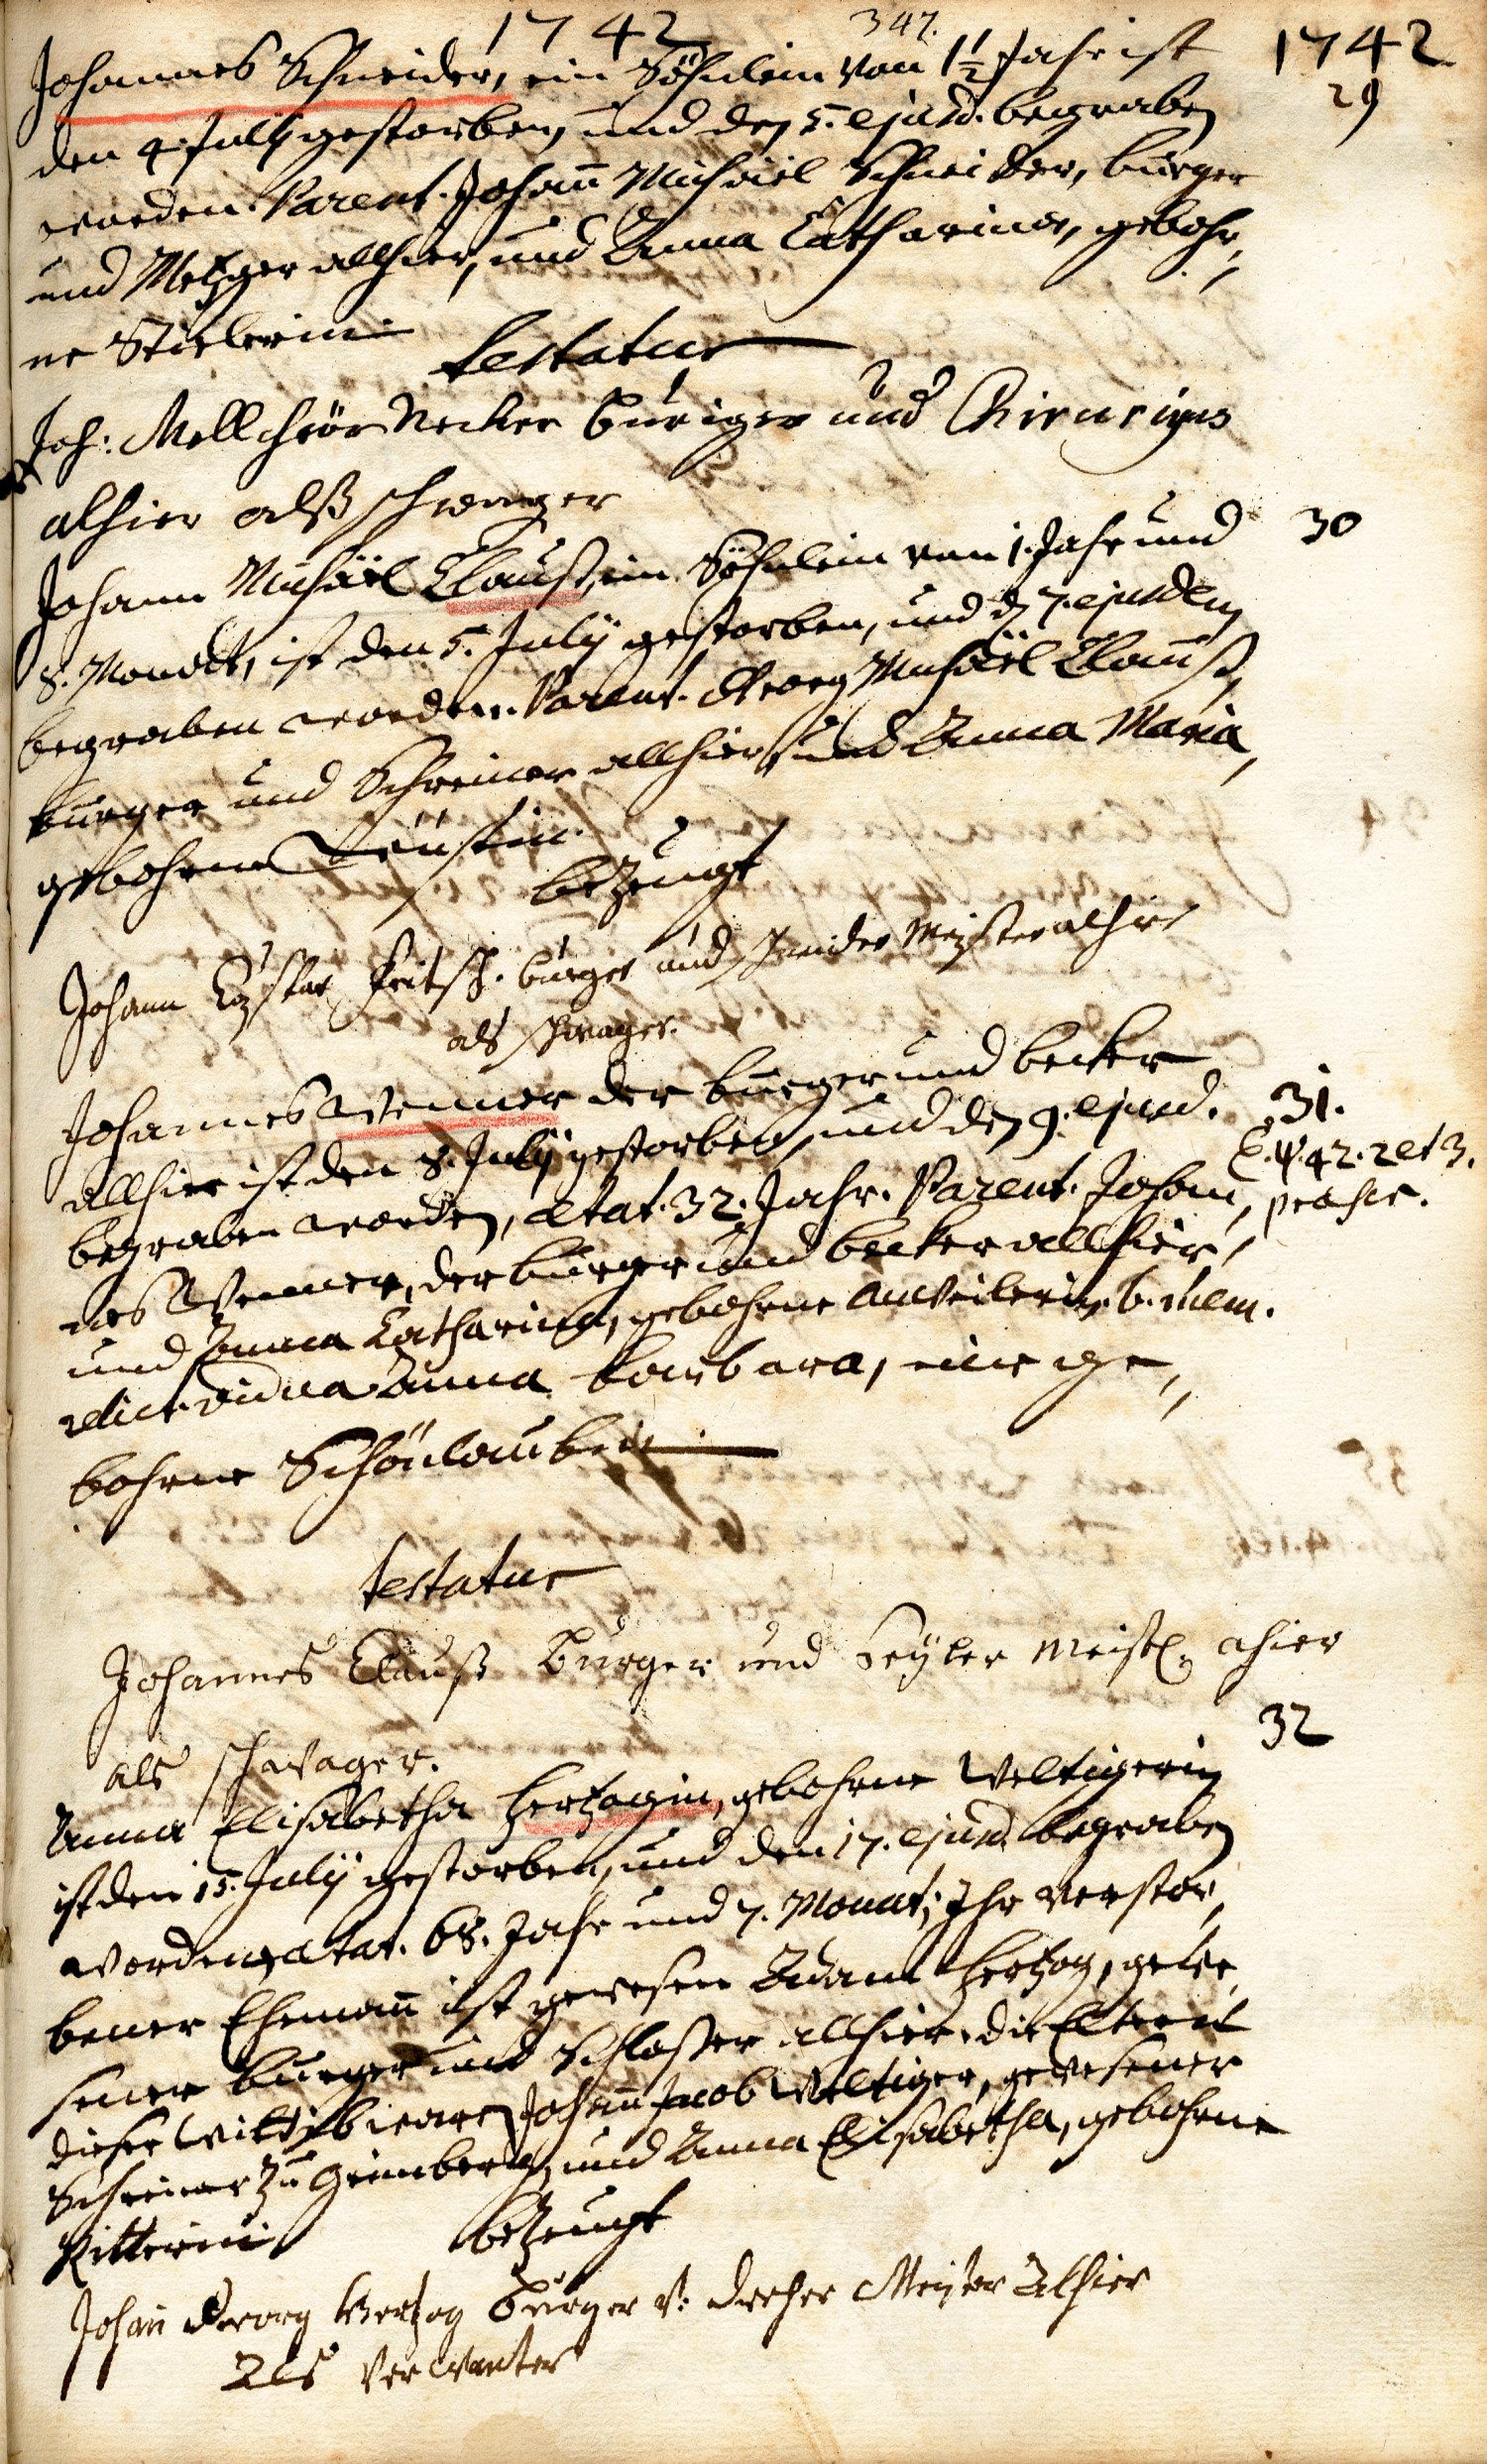 1742 347. 1742
Johannes Schneider, ein Söhnlein von 1½ Jahr ist 29
den 4. July gestorben, und den 5. ejusd. begraben
worden. Parent. Johañ Michäel Schneider, burger
und Metzger allhier, und Anna Catharina, gebohr,,
ne Stielerin
testatur
Joh: Mellchior Necker Burger und Chirurigus
alhier alß schwager
Johann Michäel Clauß, ein Söhnlein von 1. Jahr und 30
8. Monath, ist den 5. July gestorben, und d 7. ejusdem
begraben worden. Parent. Georg Michäel Clauß,
burger und Schreiner allhier, und Anna Maria,
gebohrne
bezeugt
Johann Fritsch. burger und schneider Meister alhir
als schwager.
Johannes Wenner der burger und becker 31.
allhier ist den 8. July gestorben, und den 9. ejusd. C. ψ. 42. 2 et 3.
begraben worden, ætat. 32. Jahr. Parent. Johan,,
nes Wenner, der burger und becker allhier,
und Anna Catharina, gebohrne Anweilerin. b. mem.
relict. vidua Anna barbara, eine ge,,
bohrne Schönlaubin
testatur
Johannes Clauß Burger und Seyler meist. ahier
als schwager. 32
Anna Elisabetha Hertzogin, gebohrne Weltigerin
ist den 15. July gestorben, und den 17. ejusd. begraben
worden, ætat. 68. Jahr und 7. Monat; Ihr verstor,,
bener Ehemañ ist gewesen Adam Hertzog, gewe,,
sener burger und Schloßer allhier, die Eltern
dieser Wittib waren Johañ Jacob Weltiger, gewesener
Schreiner zu und Anna Elisabetha, gebohrne
Ritterin bezeugt
Johan Georg Hertzog Burger v. dreher Meister Alhier
Als Verwanter